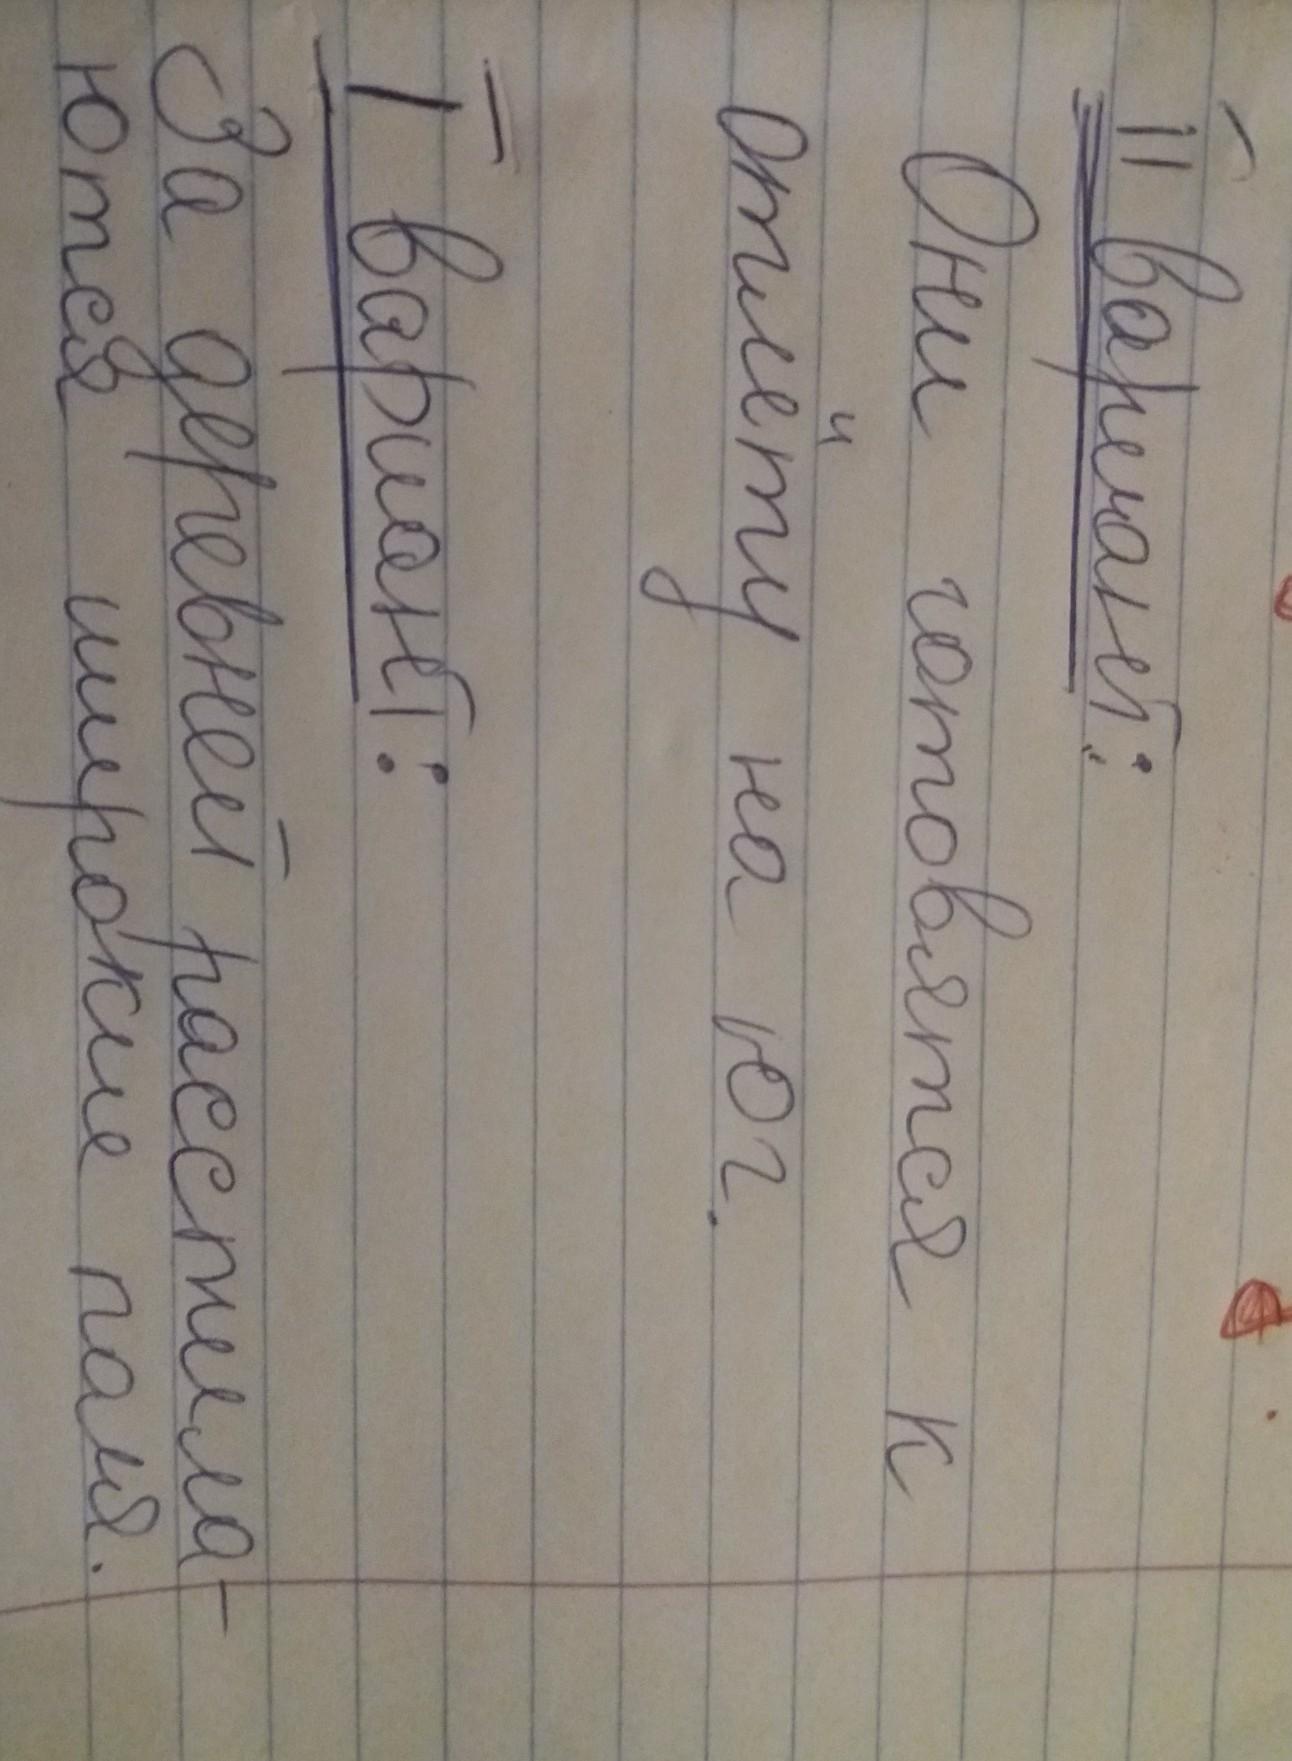 II вариант:
Они готовятся к
отлёту на юг.
I вариант:
За деревней расстила-
ются широкие поля.